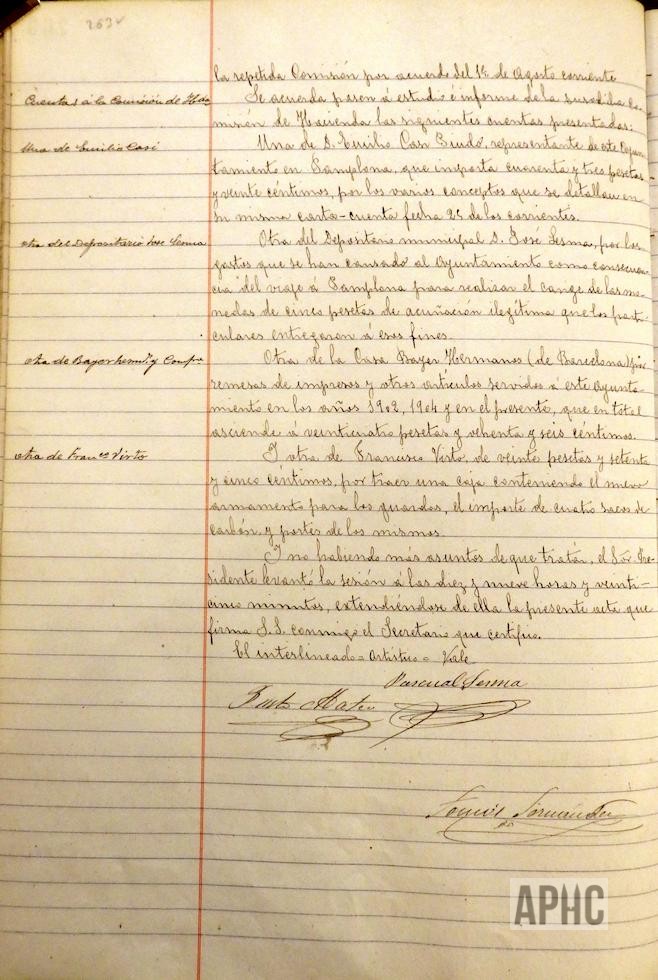 263v
la repetida Comisión por acuerdo del 1º de Agosto corriente
Cuentas á la Comisión de Hda
Se acuerda pasen á estudio é informe de la susodicha Co-
misión de Hacienda las siguientes cuentas presentadas:
Una de Emilio Casi
Una de D. Emilio Casi Ciudó, representante de este Ayun-
tamiento en Pamplona, que importa cuarenta y tres pesetas
y veinte céntimos, por los varios conceptos que se detallan en
su misma carta-cuenta fecha 25 de los corrientes.
otra del Depositario Jose Lesma
Otra del Depositario municipal D. José Lesma, por los
gastos que se han causado al Ayuntamiento como consecuen-
cia del viaje á Pamplona para realizar el cange de las mo-
nedas de cinco pesetas de acuñación ilegítima que los parti-
culares entregaron á esos fines.
otra de Bayer herms. y Compa
Otra de la Casa Bayer Hermanos (de Barcelona) por
remesas de impresos y otros artículos servidos á este Ayunta-
miento en los años 1902, 1904 y en el presente, que en total
asciende á veinticuatro pesetas y ochenta y seis céntimos.
otra de Franco Virto
I otra de Francisco Virto, de veinte pesetas y setenta
y cinco céntimos, por traer una caja conteniendo el nuevo
armamento para los guardas, el importe de cuatro sacos de
carbón y portes de los mismos.
I no habiendo más asuntos de que tratar, el Sor. Pre-
sidente levantó la sesión á las diez y nueve horas y veinti-
cinco minutos, extendiéndose de ella la presente acta que
firma S.S. conmigo el Secretario que certifico.
El interlineado = Artístico = Vale
Pascual Lesma
Justo Mateo
APHC